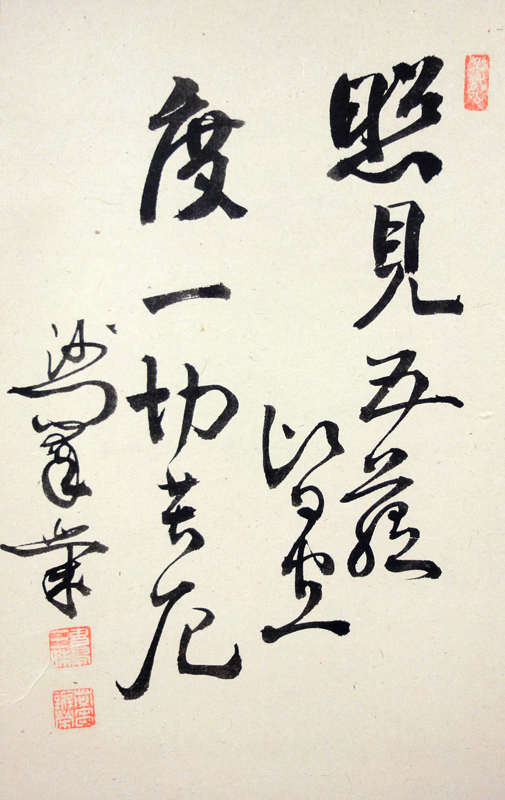 照見五蘊
皆空
度一切苦厄
沙門